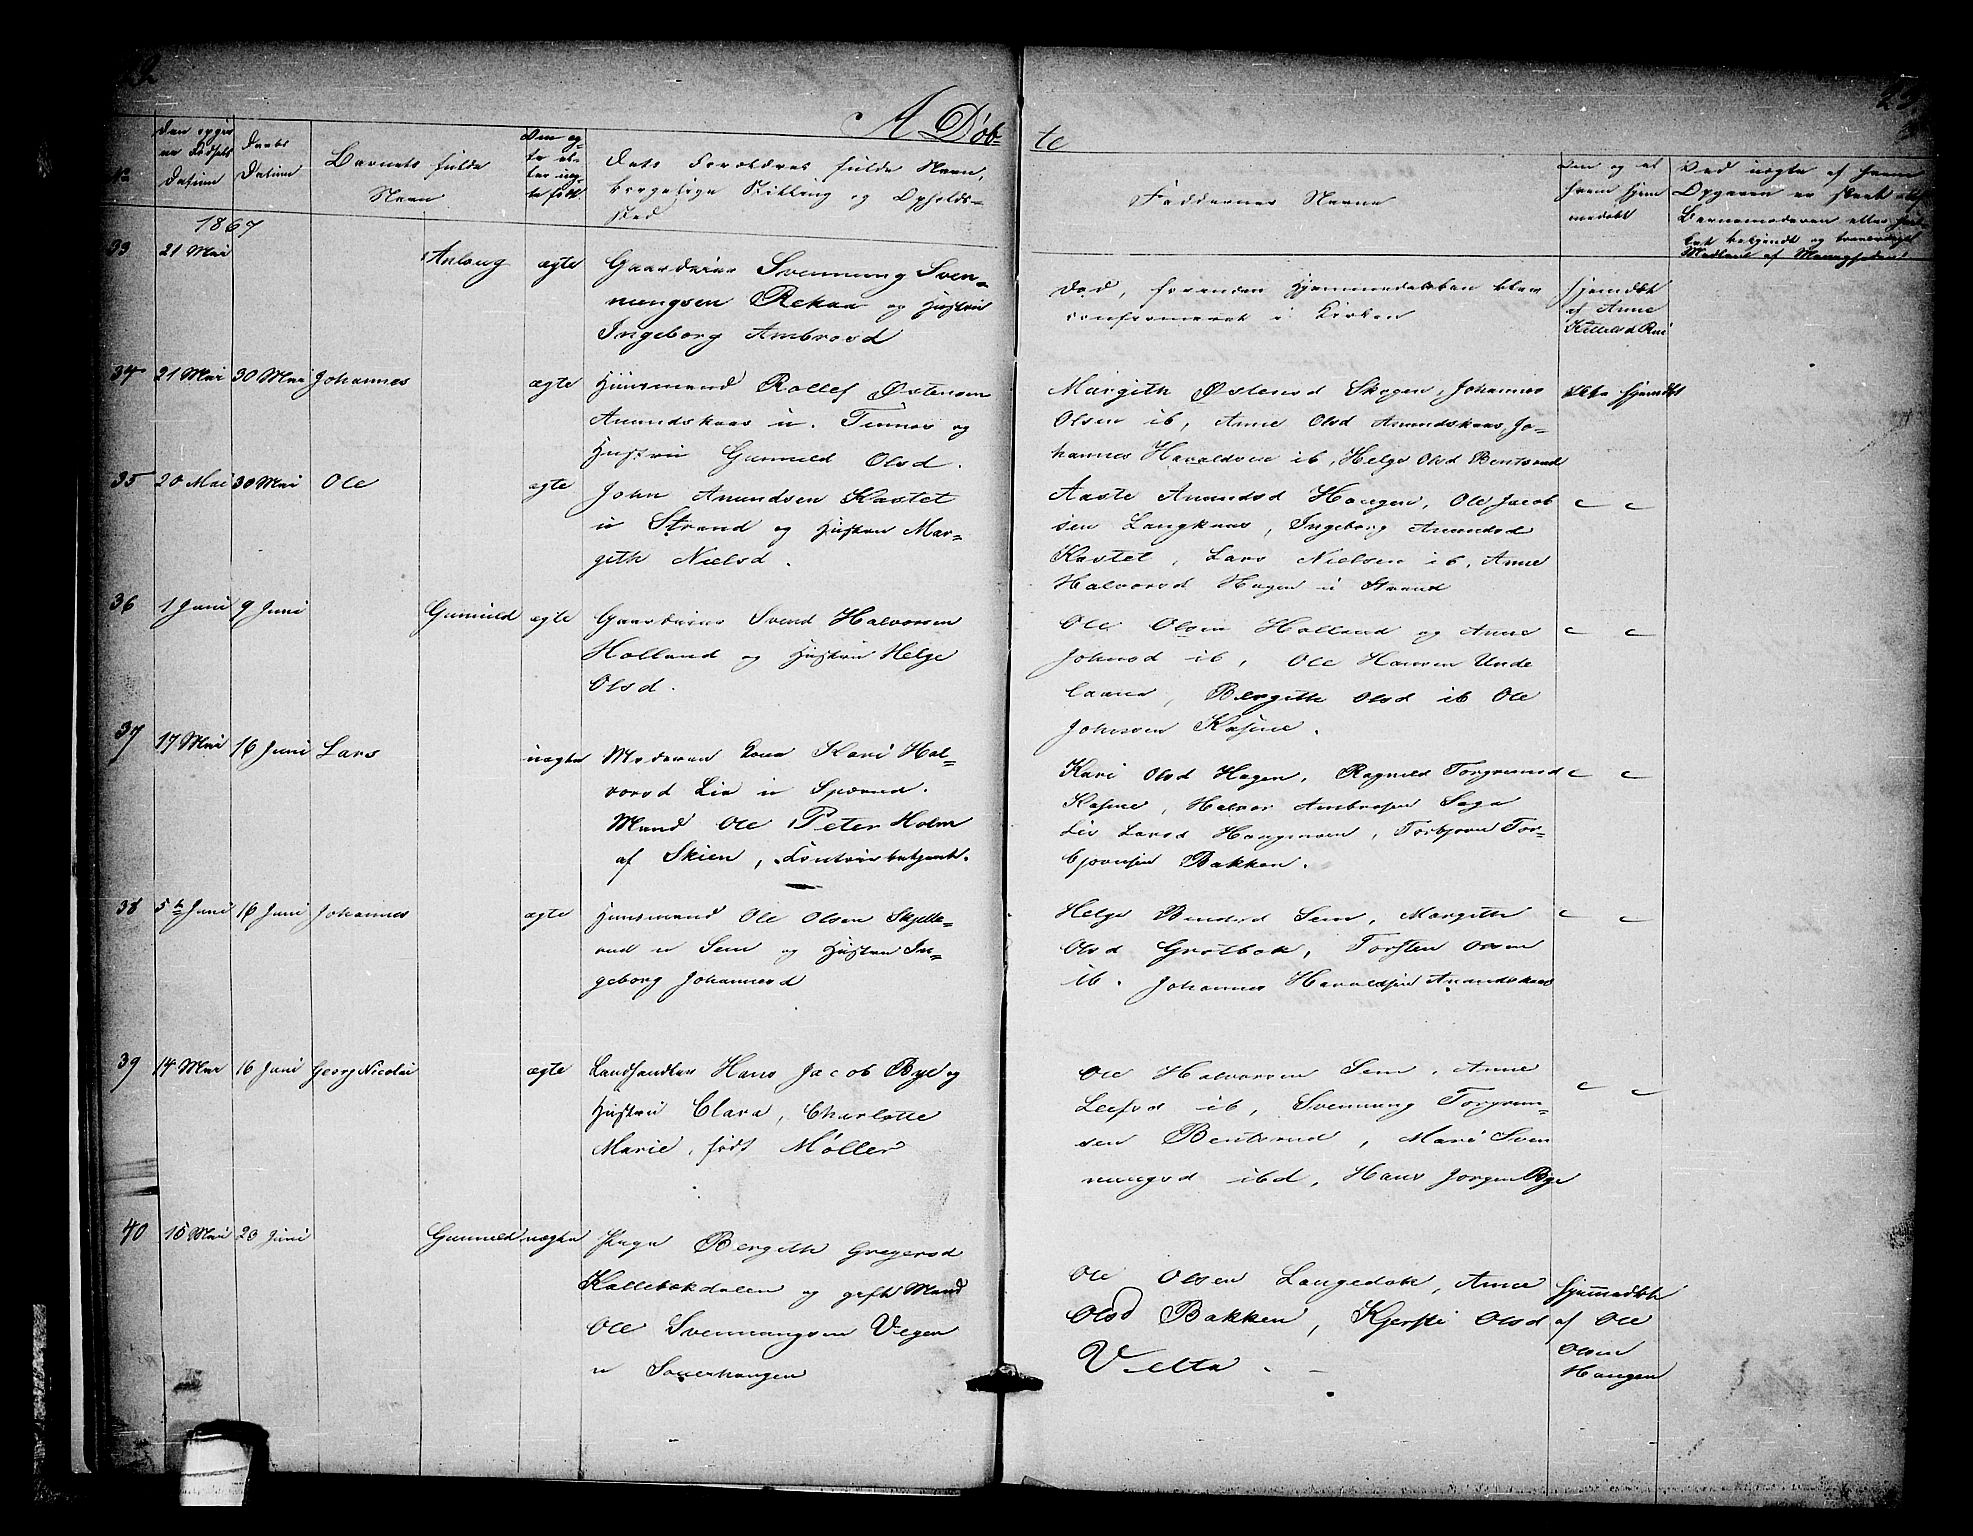 22
A Døb-
te
23
No
Den opgiv
ne Fødsels
Datum
Daabs
Datum
Barnets fulde
Navn
Om æg-
te el-
ler uæg-
te født.
Dets Forældres fulde Navn,
borgerlige Stilling og Opholds-
sted
Faddernes Navne
Om og af
hvem hjem
medøbt
1867
33
21 Mai
Anlaug
ægte
Gaardeier Svennung Sven-
nungsen Rekaa og Hustru
Ingeborg Ambrosd
Død, forenden Hjemmedaaben blev
confirmeret i Kirken
hjemdøbt
af Anne
34
21 Mai
30 Mai
Johannes
ægte
Huusmand Rollef Østensen
Amundskaas u. Tinnes og
Hustru Gunnild Olsd.
Margith Østensd Skogen, Johannes
Olsen ib, Anne Olsd Amundskaas, Jo-
hannes Haraldsen ib, Helge Olsd Bentsrud
ikke hjemdøbt
35
20 Mai
30 Mai
Ole
ægte
John Amundsen Kastet
u Strand og Hustru Mar-
gith Nielsd.
Aaste Amundsd Haugen, Ole Jacob
sen Langkaas, Ingeborg Amundsd
Kastet, Lars Nielsen ib, Anne
Halvorsd Hagen u Strand
36
1 Juni
9 Juni
Gunnild
ægte
Gaardeier Svend Halvorsen
Holland og Hustru Helge
Olsd.
Ole Olsen Holland og Anne
Johnsd ib, Ole Hansen Unde
Bergith Olsd ib Ole
Johnsen Kasine.
37
17 Mai
16 Juni
Lars
uægte
Moderen Kari Hal-
vorsd Lia u
Mand Ole Peter Holm
af Skien,
Kari Olsd Hagen, Ragnild Torgrimsd
Kasine, Halvor Ambrosen Saga
Liv Larsd Haugmoen, Torbjørn Tor-
bjørnsen Bakken.
38
5te Juni
16 Juni
Johannes
ægte
Huusmand Ole Olsen Skjelle-
rud u Sem og Hustru In-
geborg Johannesd
Helge Sem, Margith
Olsd Grotbæk, Torsten Olsen
ib. Johannes Haraldsen Amundskaas
39
14 Mai
16 Juni
Georg Nicolai
ægte
Landhandler Hans Jacob Bye og
Hustru Clara, Charlotte
Marie, født Møller
Ole Halvorsen Sem, Anne
Leifsd ib, Svennung Torgrim-
sen Bentsrud, Mari Sven
nungsd ibd, Hans Jørgen Bye
40
15 Mai
23 Juni
Gunnild
uægte
Pige Bergith Gregersd
Kallebækdalen og gift Mand
Ole Svennungsen Vegen
u
Ole Olsen Langedok, Anne
Olsd Bakken, Kjersti Olsd
Velta.
hjemmedøbt
af Ole
Olsen
Haugen